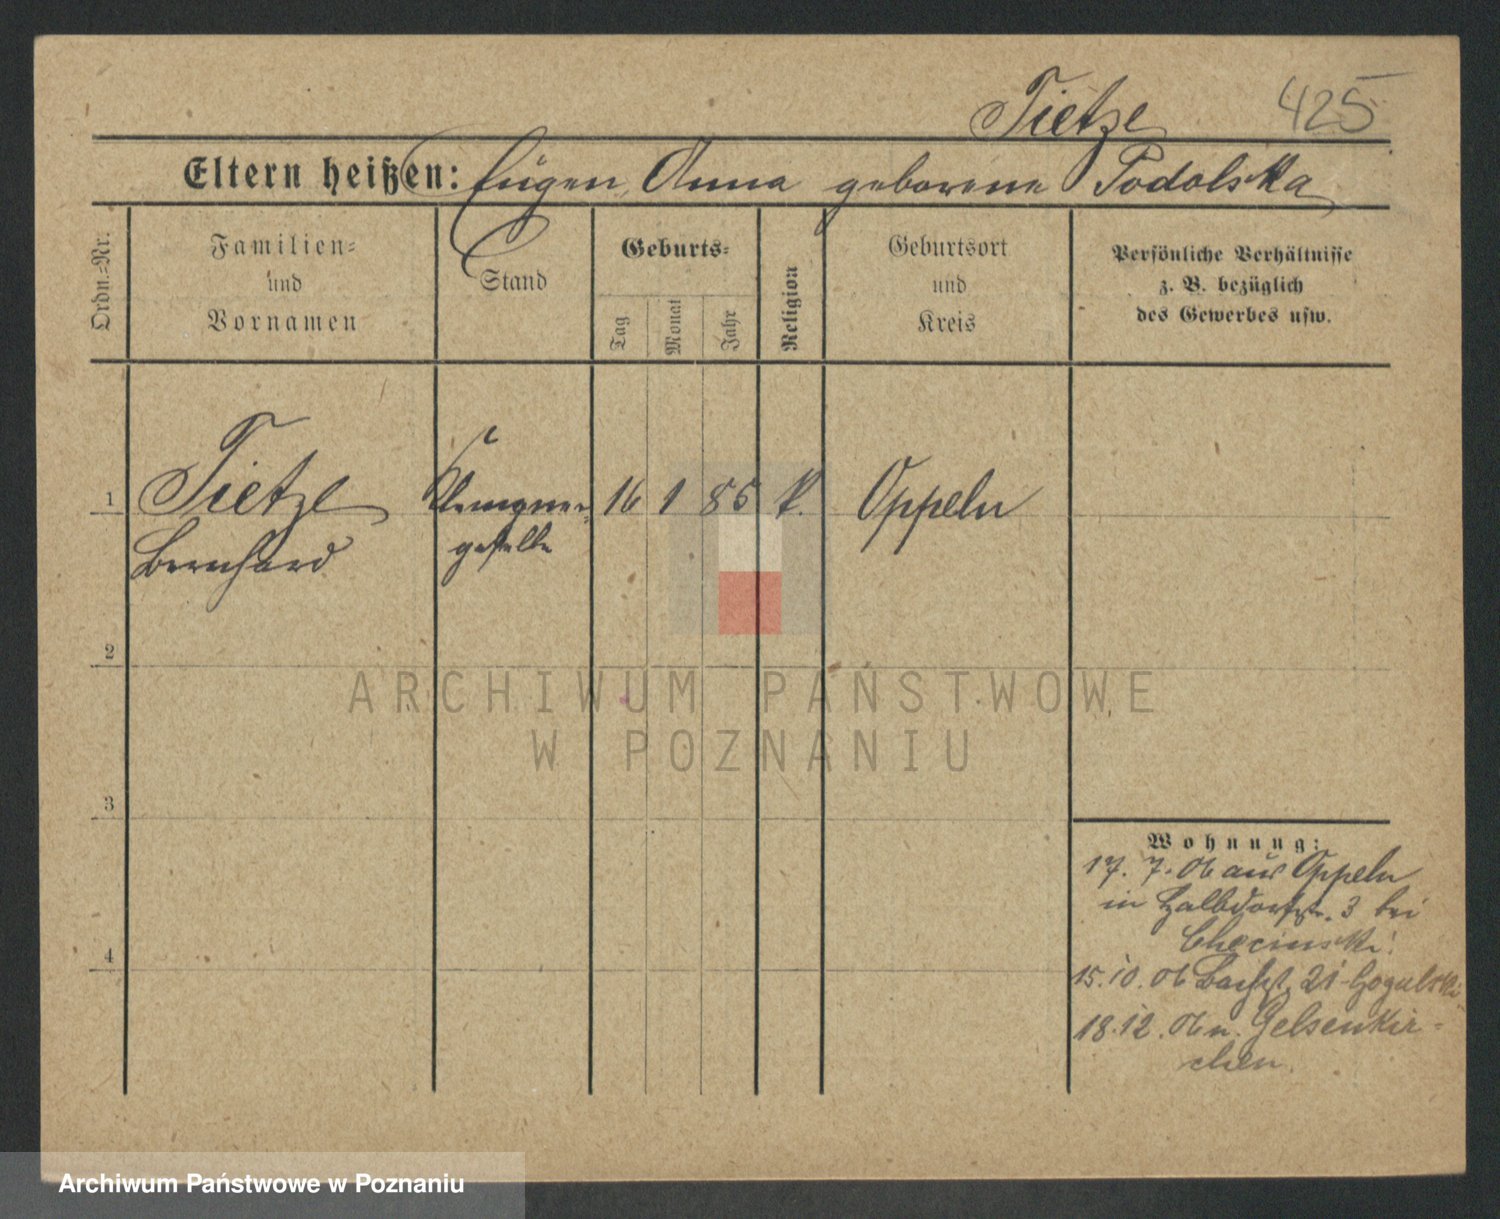 Tietze 425
Eltern heißen: Eugen, Anna geborene Podolska
Ordn.-Nr.
Familien-
und
Vornamen
Stand
Geburts-
Tag
Monat
Jahr
Religion
Geburtsort
und
Kreis
Persönliche Verhältnisse
z. B. bezüglich
des Gewerbes usw.
1 Tietze Klempner- 16 1 85 k. Oppeln
Bernhard geselle
2
3
4
Wohnung:
17. 7. 06 aus Oppeln
in Halbdorfstr. 3 bei
Checinski.
15. 10. 06 Bachst. 21 Gogulski
18. 12. 06 n. Gelsenkir-
chen.
ARCHIWUM PAŃSTWOWE
W POZNANIU
Archiwum Państwowe w Poznaniu